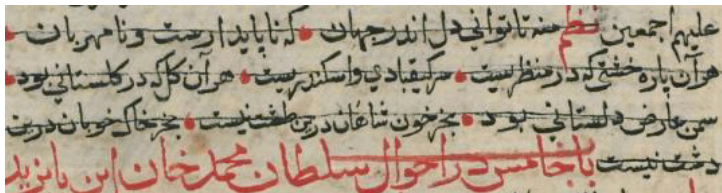 علیهم اجمعین نظم منه تا توانی دل اندر جهان • که ناپایدارست و نامهربان •
هر آن پاره خشتی که در منظریست • سر کیقبادی و اسکندریست • هر آن کل که در کلستانی بود •
سمن عارض دلستانی بود • بجز خون شاهان درین طشت نیست • بجز خاک خوبان درین
دشت نیست باب خامس در احوال سلطان محمد خان ابن بایزید